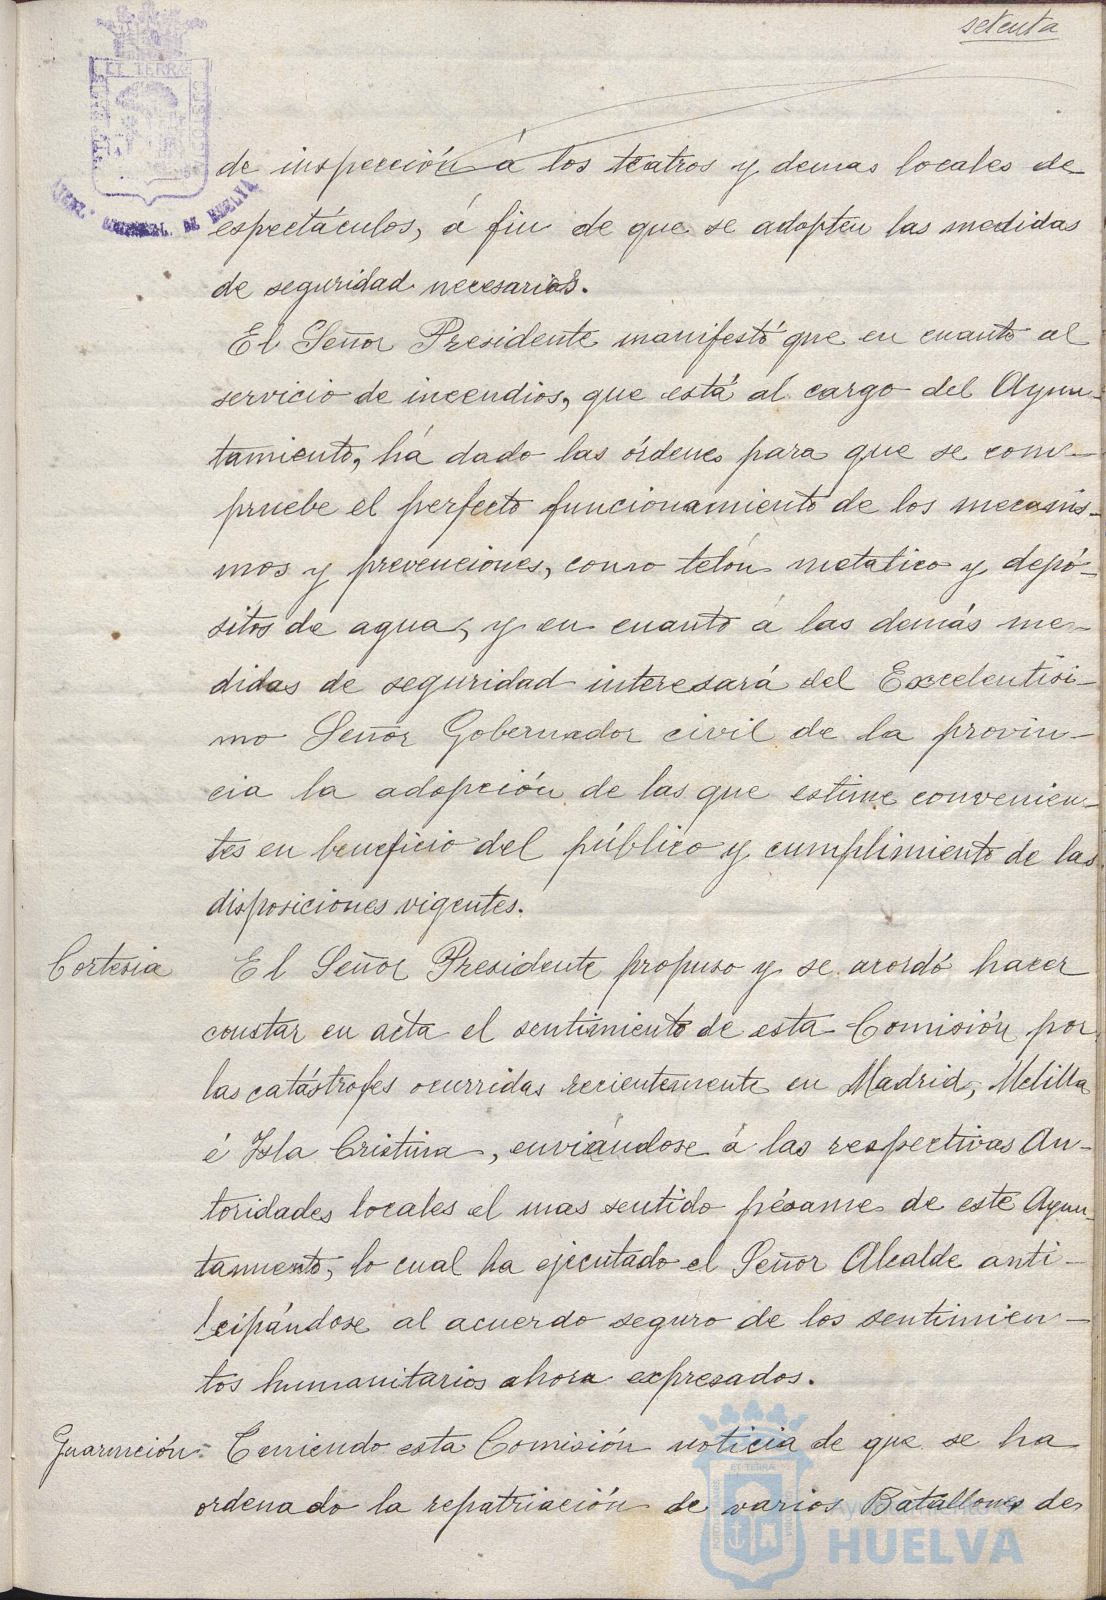 setenta
de inspección á los teatros y demas locales de
espectáculos, á fin de que se adopten las medidas
de seguridad necesarias.
El Señor Presidente manifestó que en cuanto al
servicio de incendios, que está al cargo del Ayun-
tamiento, há dado las órdenes para que se com-
pruebe el perfecto funcionamiento de los mecanis-
mos y prevenciones, como telón metalico y depó-
sitos de agua, y en cuanto á las demás me-
didas de seguridad interesará del Excelentisi-
mo Señor Gobernador civil de la provin-
cia la adopción de las que estime convenien-
tes en beneficio del público y cumplimiento de las
disposiciones vigentes.
Cortesia El Señor Presidente propuso y se acordó hacer
constar en acta el sentimiento de esta Comisión por
las catástrofes ocurridas recientemente en Madrid, Melilla
é Isla Cristina, enviándose á las respectivas Au-
toridades locales el mas sentido pésame de este Ayun-
tamiento, lo cual ha ejecutado el Señor Alcalde anti-
cipándose al acuerdo seguro de los sentimien-
tos humanitarios ahora expresados.
Guarnición Teniendo esta Comisión noticia de que se ha
ordenado la repatriación de varios Batallones de
EL TERRÆ
CUSTO
DE HUELVA
EL TERRÆ
Ayuntamiento de
HUELVA